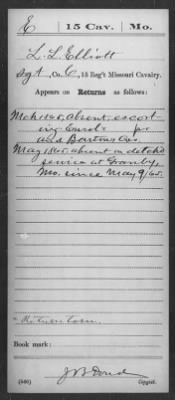 E 15 Cav. Mo.
L. L. Elliott
Sgt, Co. C, 15 Reg't Missouri Cavalry.
Appears on Returns as follows:
Mch 1865, absent, escort
ing
and Bartons Cos
May 1865 absent on detchd
service at Granby,
Mo. since May 9/65.
* Return torn.
Book mark:
(546) Copyist.